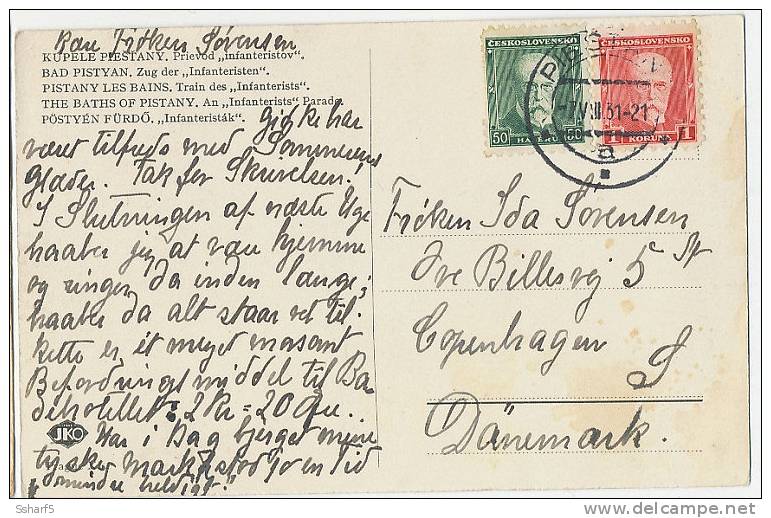 Frøken Sørensen
KÚPELE PIEŠŤANY. Prievod „infanteristov".
BAD PISTYAN. Zug der „Infanteristen".
PISTANY LES BAINS. Train des „Infanterists".
THE BATHS OF PISTANY. An „Infanterists" Parade
PÖSTYÉN FÜRDŐ. „Infanteristák."
været tilfreds med Sommerens
Glæder. Tak for Skrivelsen!
I Slutningen af næste Uge
haaber jeg at være hjemme
og ringer da inden længe;
haaber da alt staar vel til.
Dette er et meget morsomt
Befordringsmiddel til Ba
dehotellet: 2 Kr = 20 Øre.
Har i Dag bjerget mine
tyske
mindre heldigt!
JKO
ČESKOSLOVENSKO
50 HALERU 50
ČESKOSLOVENSKO
1 KORUNA 1
7.VIII.31-21
a
Frøken Ida Sørensen
Ove Billesvej 5 St
Copenhagen S
Dänemark.
Scharf5
delcampe.net